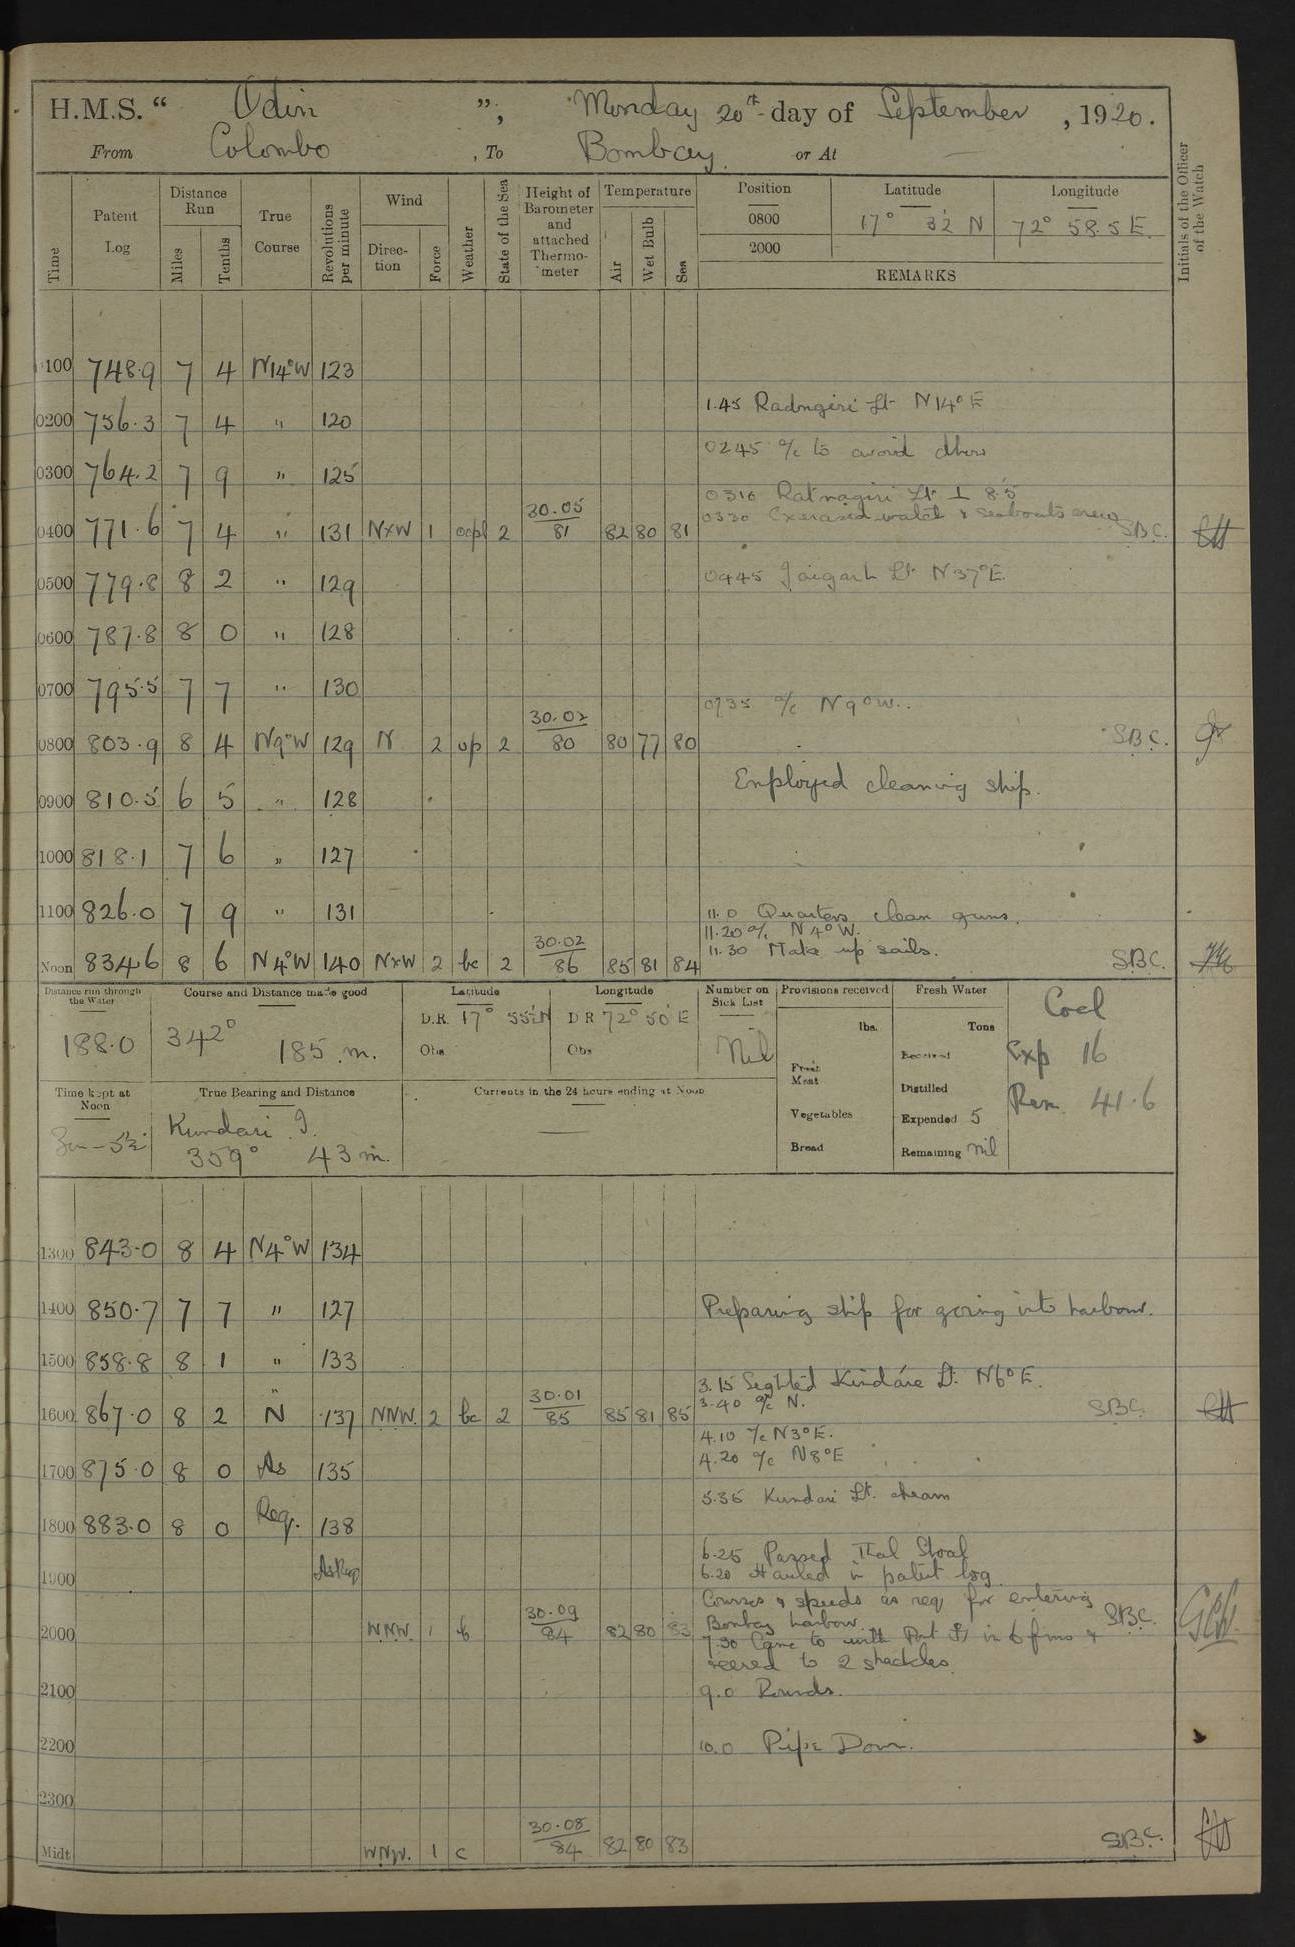 H.M.S. “ Odin ”, Monday 20th day of September, 1920.
From Colombo, To Bombay. or At —
Time Patent Log Distance Run Miles Tenths True Course Revolutions per minute Wind Direction Force Weather State of the Sea Height of Barometer and attached Thermometer Temperature Air Wet Bulb Sea Position Latitude Longitude Initials of the Officer of the Watch
0800 17° 32' N 72° 58.5 E.
2000
REMARKS
0100 748.9 7 4 N14°W 123
1.45 Radngiri Lt N14°E
0200 756.3 7 4 " 120
0245 a/c to avoid dhow
0300 764.2 7 9 " 125
0316 Ratnagiri Lt ⊥ 8.5
0330 Exercised watch & seaboats crew
0400 771.6 7 4 " 131 NxW 1 2 30.05 81 82 80 81 SBC.
0445 Jaigarh Lt N37°E.
0500 779.8 8 2 " 129
0600 787.8 8 0 " 128
0700 795.5 7 7 " 130
0735 a/c N9°W.
0800 803.9 8 4 N9°W 129 N 2 op 2 30.02 80 80 77 80 SBC.
Employed cleaning ship.
0900 810.5 6 5 " 128
1000 818.1 7 6 " 127
1100 826.0 7 9 " 131
11.0 Quarters clean guns.
11.20 a/c N4°W.
11.30 Make up sails.
Noon 834.6 8 6 N4°W 140 NxW 2 bc 2 30.02 86 85 81 84 SBC.
Distance run through the Water Course and Distance made good Latitude Longitude Number on Sick List Provisions received Fresh Water Coal
188.0 342° 185 m. D.R. 17° 55' N D R 72° 50' E Nil lbs. Tons
Obs Obs Fresh Meat Received Exp 16
Time kept at Noon True Bearing and Distance Currents in the 24 hours ending at Noon Distilled Rem 41.6
Kundari I. — Vegetables Expended 5
359° 43 m. Bread Remaining nil
1300 843.0 8 4 N4°W 134
1400 850.7 7 7 " 127 Preparing ship for going into harbour.
1500 858.8 8 1 " 133
3.15 Seghted Kindare Lt. N6°E.
3.40 a/c N.
1600 867.0 8 2 N 137 NNW. 2 bc 2 30.01 85 85 81 85 SBC.
4.10 a/c N3°E.
4.20 a/c N8°E
1700 875.0 8 0 As 135
5.35 Kundari Lt. abeam
1800 883.0 8 0 Req. 138
6.25 Passed Thal Shoal
6.20 Hauled in patent log
1900 As Req
Courses & speeds as req for entering
Bombay harbour.
2000 WNW. 1 b 30.09 84 82 80 83 SBC.
7.30 Came to with Port in 6 fms &
veered to 2 shackles.
2100 9.0 Rounds.
2200 10.0 Pipe Down.
2300
Midt WNW. 1 c 30.08 84 82 80 83 SBC.